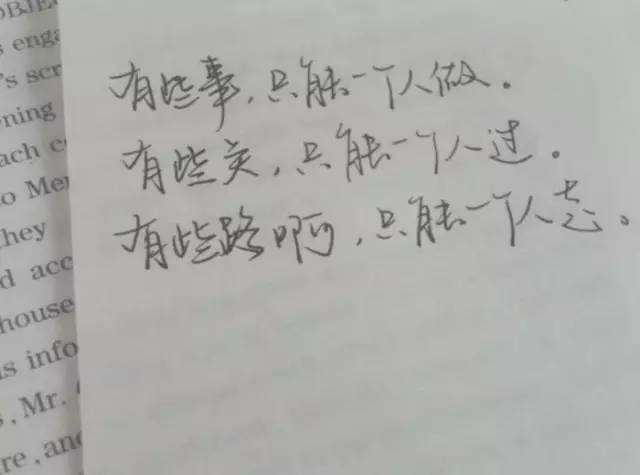 OBJE
s enga
's scr
ning
ach c
o Mer
they
d acc
house
s info
s, Mr.
re, and
有些事,只能一个人做.
有些关,只能一个人过.
有些路啊,只能一个人走。